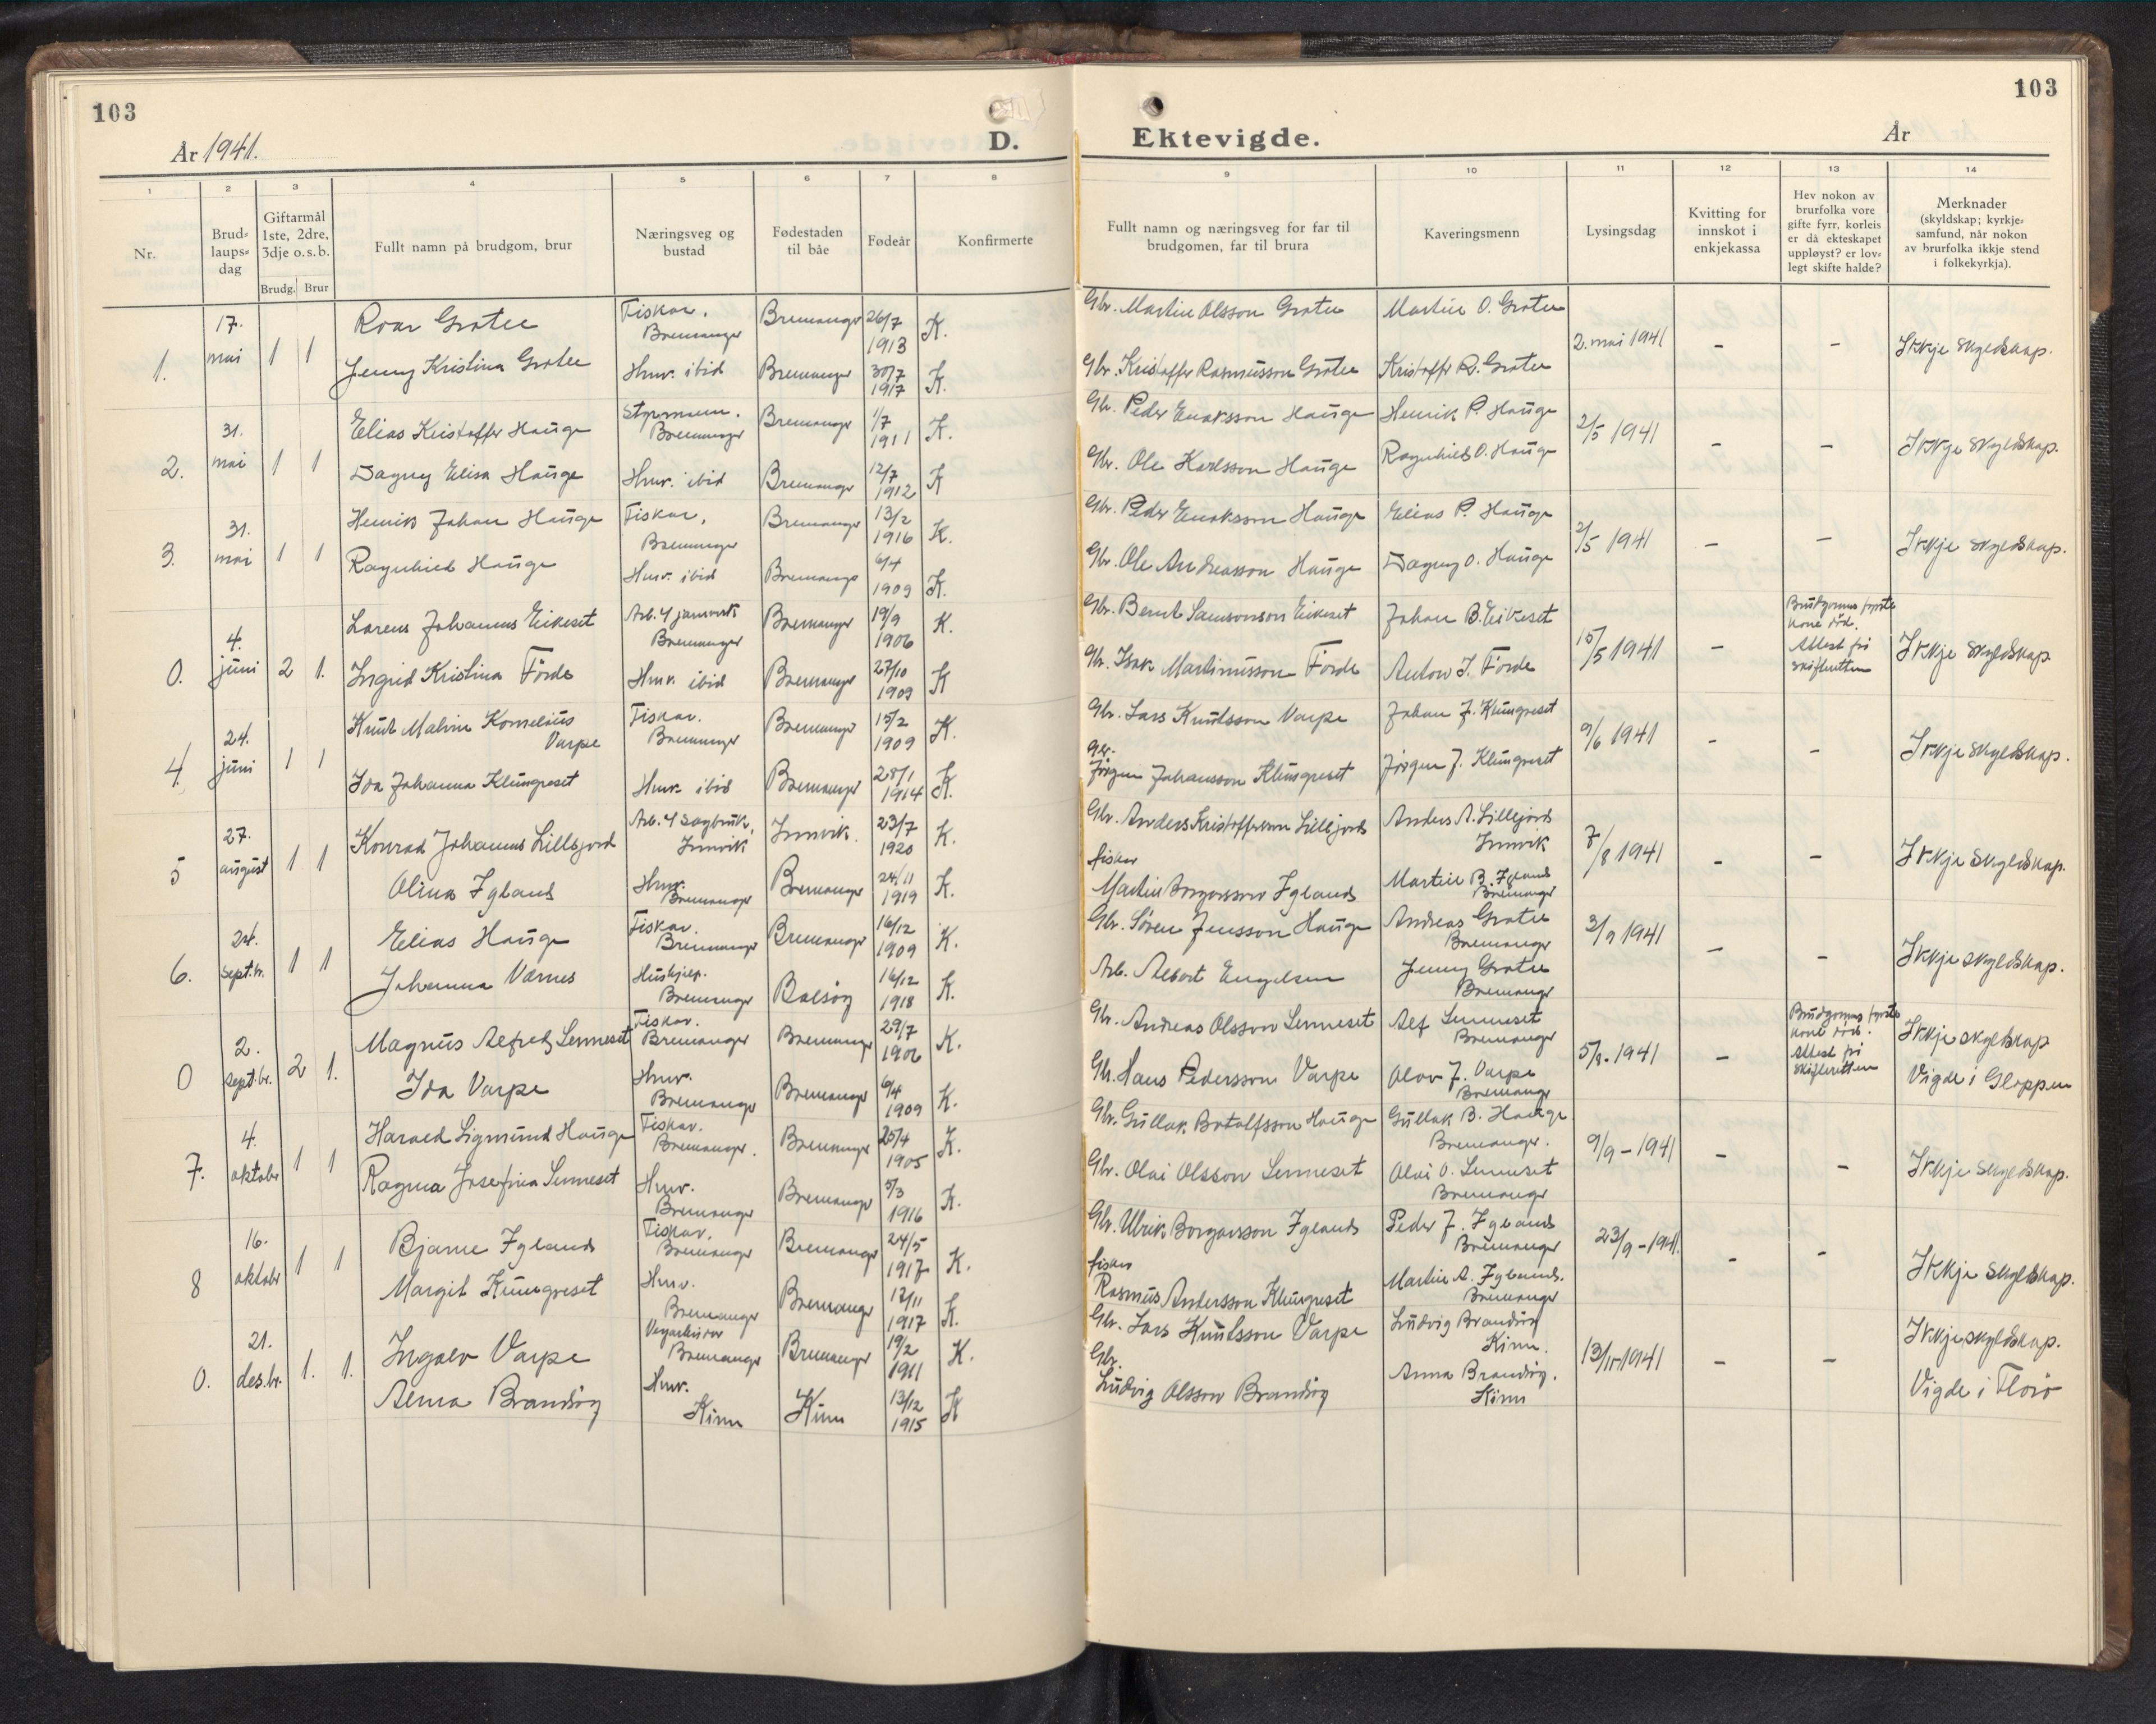 103
År 1941.
D.
1 2 3 4 5 6 7 8
Nr.
Brud-
laups-
dag
Giftarmål
1ste, 2dre,
3dje o.s.b.
Brudg. Brur
Fullt namn på brudgom, brur
Næringsveg og
bustad
Fødestaden
til båe
Fødeår
Konfirmerte
1. 17. mai 1 1
Roar Grotle Fiskar, Bremanger Bremanger 26/7 1913 K.
Jenny Kristina Grotle Husv. ibid Bremanger 30/7 1917 K.
2. 31. mai 1 1
Elias Kristoffer Hauge Styrmann. Bremanger Bremanger 1/7 1911 K.
Dagny Elisa Hauge Husv. ibid Bremanger 12/7 1912 K
3. 31. mai 1 1
Henrik Johan Hauge Fiskar, Bremanger Bremanger 13/2 1916 K.
Ragnhild Hauge Husv. ibid Bremanger 6/4 1909 K.
0. 4. juni 2 1.
Lorens Johannes Eikeset Arb. 4 jarnverk Bremanger Bremanger 19/9 1906 K.
Ingrid Kristina Förde Husv. ibid Bremanger 27/10 1909 K
4. 24. juni 1 1
Knut Malvin Kornelius
Varpe Fiskar. Bremanger Bremanger 15/2 1909 K.
Ida Johanna Klungreset Husv. ibid Bremanger 28/1 1914 K.
5 27. august 1 1
Konrad Johannes Lillejord Arb. 4 Sagbruk, Innvik Innvik. 23/7 1920 K.
Olina Igland Husv. Bremanger Bremanger 24/11 1919 K.
6. 24. sept.br. 1 1
Elias Hauge Fiskar. Bremanger Bremanger 16/12 1909 K.
Johanna Værnes Hushjelp. Bremanger Bolsöy 16/12 1918 K.
0 2. sept.br. 2 1.
Magnus Alfred Senneset Fiskar. Bremanger Bremanger 29/7 1906 K.
Ida Varpe Husv. Bremanger Bremanger 6/4 1909 K.
7. 4. oktober 1 1
Harald Sigmund Hauge Fiskar. Bremanger. Bremanger 25/4 1905 K.
Ragna Josefina Senneset Husv. Bremanger Bremanger 5/3 1916 K.
8 16. oktober 1 1
Bjarne Igland Fiskar, Bremanger Bremanger 24/5 1917 K.
Margit Klungreset Husv. Bremanger Bremanger 12/11 1917 K.
0. 21. des.br. 1. 1.
Ingolv Varpe Bremanger Bremanger 19/2 1911 K.
Alma Brandsöy Husv. Kinn Kinn 13/12 1915 K
103
Ektevigde.
År
9 10 11 12 13 14
Fullt namn og næringsveg for far til
brudgomen, far til brura
Kaveringsmenn
Lysingsdag
Kvitting for
innskot i
enkjekassa
Hev nokon av
brurfolka vore
gifte fyrr, korleis
er då ekteskapet
uppløyst? er lov-
legt skifte halde?
Merknader
(skyldskap; kyrkje-
samfund, når nokon
av brurfolka ikkje stend
i folkekyrkja).
Gbr. Martin Olsson Grotle Martin O. Grotle 2. mai 1941 – – Ikkje skyldskap.
Gbr. Kristoffer Rasmusson Grotle Kristoffer R. Grotle
Gbr. Peder Enoksson Hauge Henrik P. Hauge 2/5 1941 – – Ikkje skyldskap.
Gbr. Ole Karlsson Hauge Ragnhild O. Hauge
Gbr. Peder Enoksson Hauge Elias P. Hauge 2/5 1941 – – Ikkje skyldskap.
Gbr. Ole Andreasson Hauge Dagny O. Hauge
Gbr. Bernt Samsonson Eikeset Johan B. Eikeset 15/5 1941 – Brudgomens fyrste kone död. Attest frå skifteretten Ikkje skyldskap
Gbr. Isak Martinusson Förde Anton I. Förde
Gbr. Lars Knutsson Varpe Johan J. Klungreset 9/6 1941 – – Ikkje skyldskap.
Gbr.
Jörgen Johansson Klungreset Jörgen J. Klungreset
Gbr. Anders Kristofferson Lillejord Anders A. Lillejord Innvik 7/8 1941 – – Ikkje skyldskap.
fiskar
Martin Borgarsson Igland Martin B. Igland Bremanger
Gbr. Sören Jensson Hauge Andreas Grotle Bremanger 3/9 1941 – – Ikkje skyldskap.
Arb. Albert Engelsen Jenny Grotle Bremanger
Gbr. Andreas Olsson Senneset Alf Senneset Bremanger 5/8. 1941 – Brudgomens fyrste kone död. Attest frå skifteretten Ikkje skyldskap
Gbr. Hans Pedersson Varpe Olav J. Varpe Bremanger Vigde i Gloppen
Gbr. Gullak Botolfsson Hauge Gullak B. Hauge Bremanger. 9/9 – 1941 – – Ikkje skyldskap.
Gbr. Olai Olsson Senneset Olai O. Senneset Bremanger
Gbr. Ulrik Borgarsson Igland Peder J. Igland Bremanger 23/9 – 1941. – – Ikkje skyldskap.
fiskar
Rasmus Andersson Klungreset Martin A. Igland. Bremanger
Gbr. Lars Knutsson Varpe Ludvig Brandsöy Kinn. 13/11 1941 – – Ikkje skyldskap.
Gbr.
Ludvig Olsson Brandsöy Anna Brandsöy. Kinn Vigde i Florö